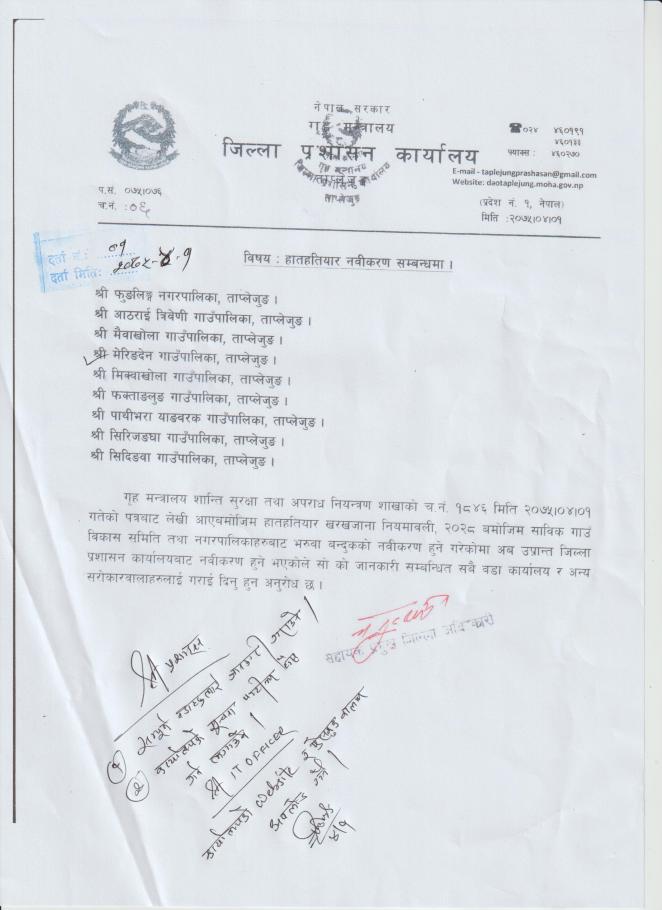 नेपाल सरकार
गृह मन्त्रालय
जिल्ला प्रशासन कार्यालय
ताप्लेजुङ
☎०२४ ४६०१९१
४६०१३३
फ्याक्स : ४६०२७०
E-mail - taplejungprashasan@gmail.com
Website: daotaplejung.moha.gov.np
प.सं. ०७५।०७६
च.नं. :०६
(प्रदेश नं. १, नेपाल)
मिति :२०७५।०४।०१
दर्ता नं.: ०१
दर्ता मिति: २०७५-४-१
विषय : हातहतियार नवीकरण सम्बन्धमा ।
श्री फुङलिङ्ग नगरपालिका, ताप्लेजुङ ।
श्री आठराई त्रिवेणी गाउँपालिका, ताप्लेजुङ ।
श्री मैवाखोला गाउँपालिका, ताप्लेजुङ ।
श्री मेरिङदेन गाउँपालिका, ताप्लेजुङ ।
श्री मिक्वाखोला गाउँपालिका, ताप्लेजुङ ।
श्री फक्ताङलुङ गाउँपालिका, ताप्लेजुङ ।
श्री पाथीभरा याङवरक गाउँपालिका, ताप्लेजुङ ।
श्री सिरिजङघा गाउँपालिका, ताप्लेजुङ ।
श्री सिदिङवा गाउँपालिका, ताप्लेजुङ ।
गृह मन्त्रालय शान्ति सुरक्षा तथा अपराध नियन्त्रण शाखाको च.नं. १८४६ मिति २०७५।०४।०१
गतेको पत्रबाट लेखी आएबमोजिम हातहतियार खरखजाना नियमावली, २०२८ बमोजिम साविक गाउँ
विकास समिति तथा नगरपालिकाहरुबाट भरुवा बन्दुकको नवीकरण हुने गरेकोमा अब उप्रान्त जिल्ला
प्रशासन कार्यालयबाट नवीकरण हुने भएकोले सो को जानकारी सम्बन्धित सबै वडा कार्यालय र अन्य
सरोकारवालाहरुलाई गराई दिनु हुन अनुरोध छ ।
सहायक प्रमुख जिल्ला अधिकारी
श्री प्रशासन
१ सम्पूर्ण वडाहरूलाई जानकारी गराउने ।
२ कार्यालयको सूचना पाटीमा टाँस
गर्न लगाउने ।
श्री IT OFFICER
कार्यालयको website र फेसबुक वालमा
अपलोड गर्ने ।
४/१